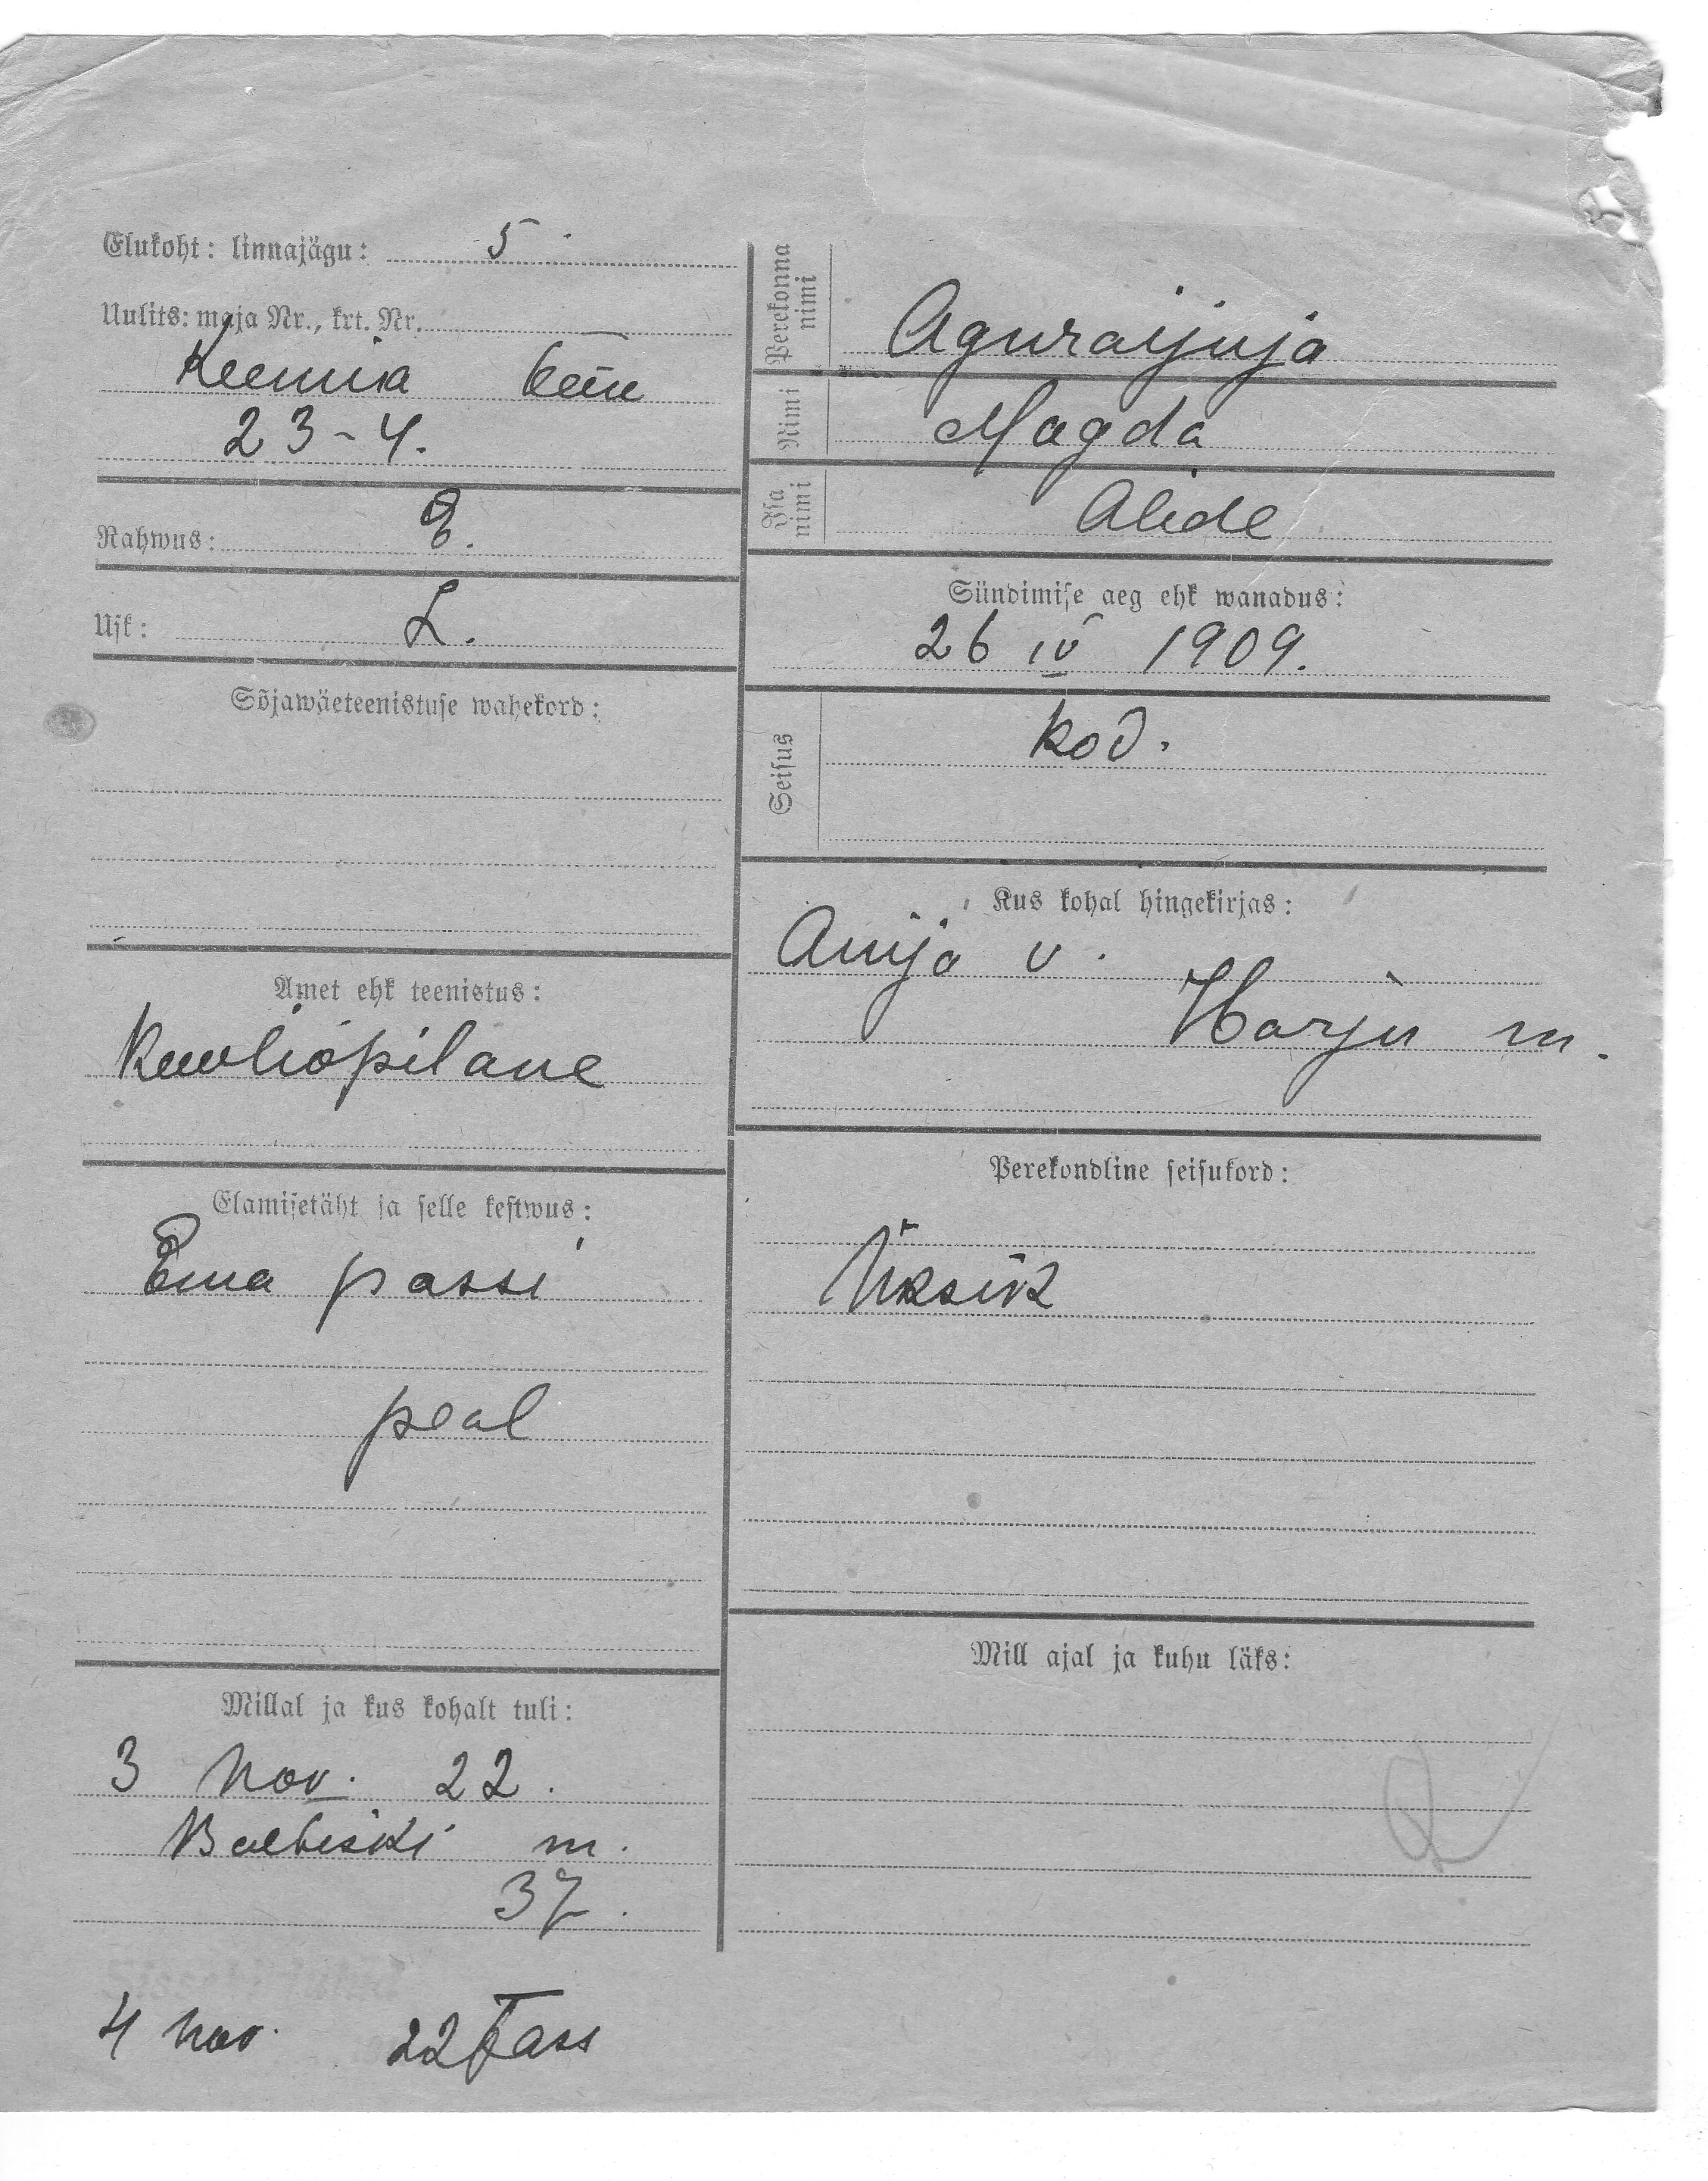 Elukoht: linnajägu: 5
Uulits: maja Nr., krt. Nr.
Keemia
23-4.
Rahwus: E.
Usk: L.
Sõjawäeteenistuse wahekord:
Amet ehk teenistus:
Kooliõpilane
Elamisetäht ja selle kestwus:
Ema passi
peal
Millal ja kus kohalt tuli:
3 Nov. 22.
m.
37.
4 Nov. 22
Perekonna nimi
Aguraijuja
Nimi Magda
Isa nimi Alide
Sündimise aeg ehk wanadus:
26 IV 1909.
Seisus kod.
Kus kohal hingekirjas:
Anija v.
Harju m.
Perekondline seisukord:
Üksik
Mill ajal ja kuhu läks: